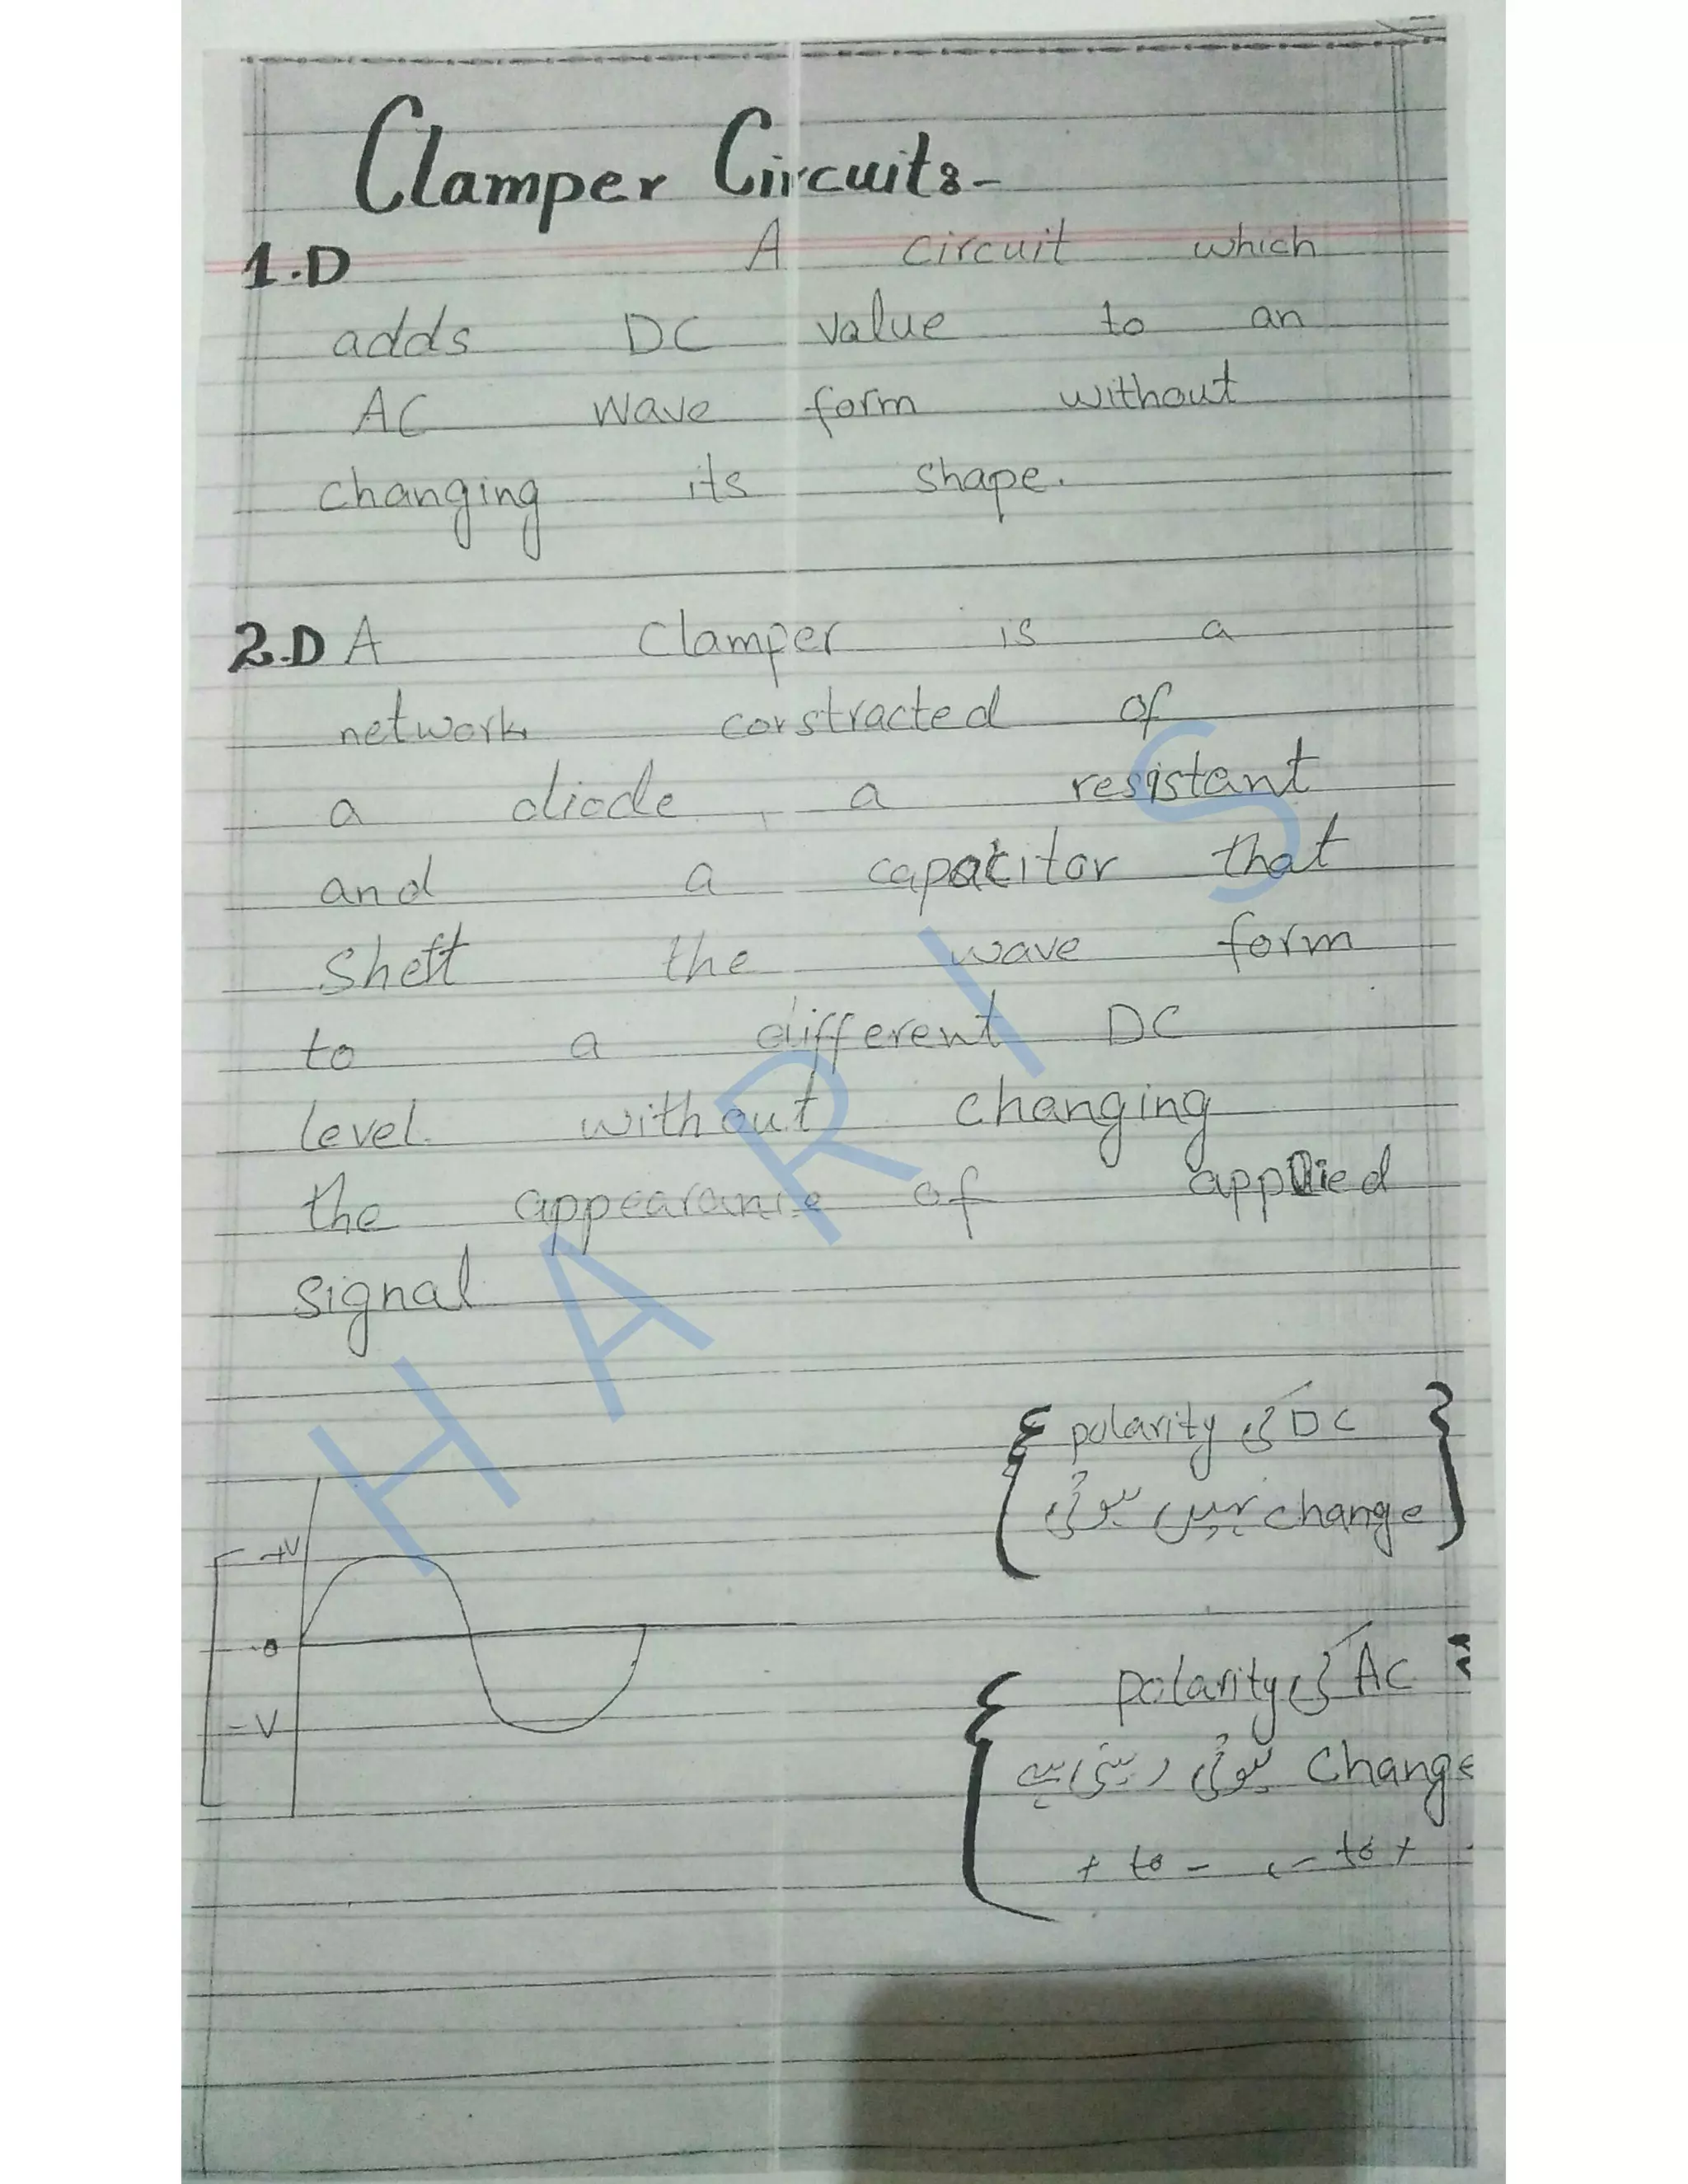 Clamper Circuits-
1.D A circuit which
adds DC value to an
AC wave form without
changing its shape.
2.D A Clamper is a
network constracted of
a diode, a resistant
and a capacitor that
Sheft the wave form
to a different DC
level without changing
the appearance of applied
signal
DC کی polarity
change نہیں ہوتی
+V
0
-V
AC کی polarity
Change ہوتی رہتی ہے
+ to - , - to +
HARIS